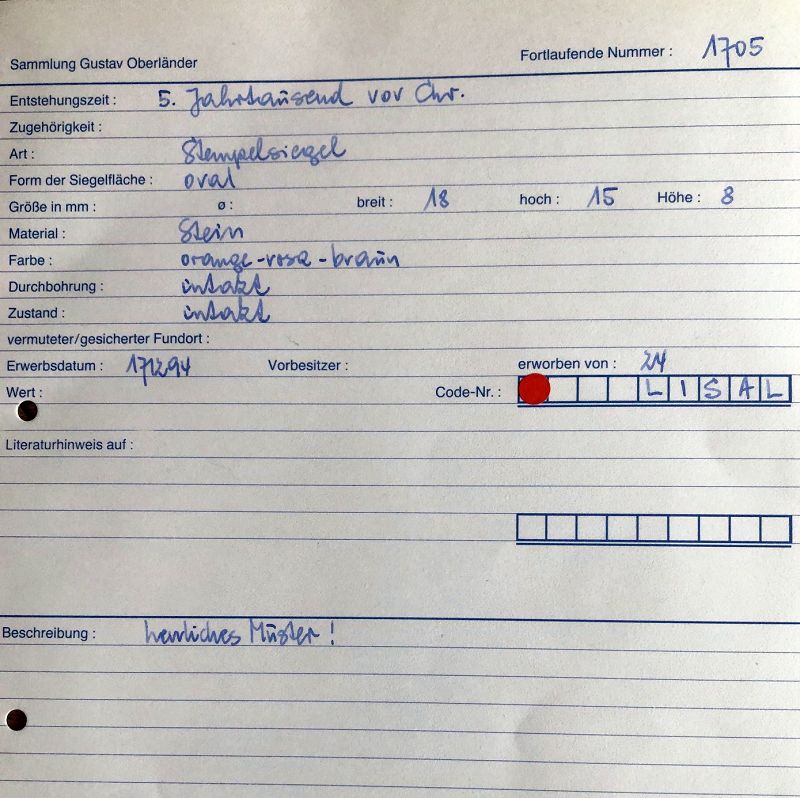 Sammlung Gustav Oberländer Fortlaufende Nummer : 1705
Entstehungszeit : 5. Jahrtausend vor Chr.
Zugehörigkeit :
Art : Stempelsiegel
Form der Siegelfläche : oval
Größe in mm : ø : breit : 18 hoch : 15 Höhe : 8
Material : Stein
Farbe : orange-rosa-braun
Durchbohrung : intakt
Zustand : intakt
vermuteter/gesicherter Fundort :
Erwerbsdatum : 171294 Vorbesitzer : erworben von : 24
Wert : Code-Nr. : L I S A L
Literaturhinweis auf :
Beschreibung : herrliches Muster !